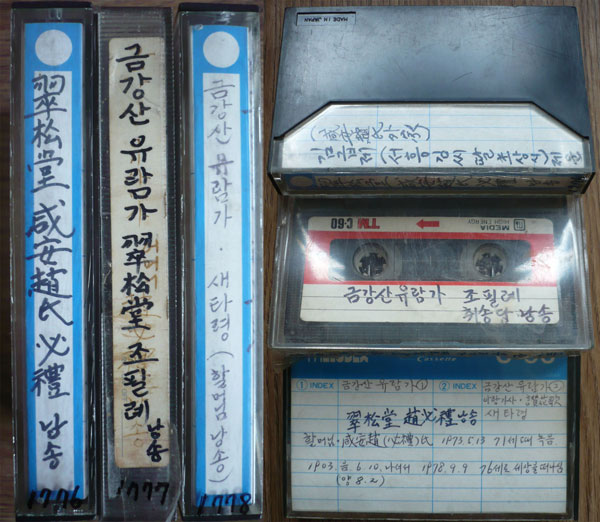 翠松堂 咸安趙氏 必禮 낭송
1776
금강산 유람가 翠松堂 조필례 낭송
1777
금강산 유람가 · 새타령 (할머님 낭송)
1778
MADE IN JAPAN
MEDIA
HIGH ENERGY
TM C-60
금강산유람가 조필례
취송당 낭송
Cassette
① INDEX 금강산 유람가①
② INDEX 금강산 유람가②
새타령
翠松堂 趙必禮 낭송
할머님·咸安趙(必禮)氏 1973.5.13 71세때 녹음
1903.음.6.10. 나셔서 1978.9.9 76세로 세상을 떠나심
(양 8.2)